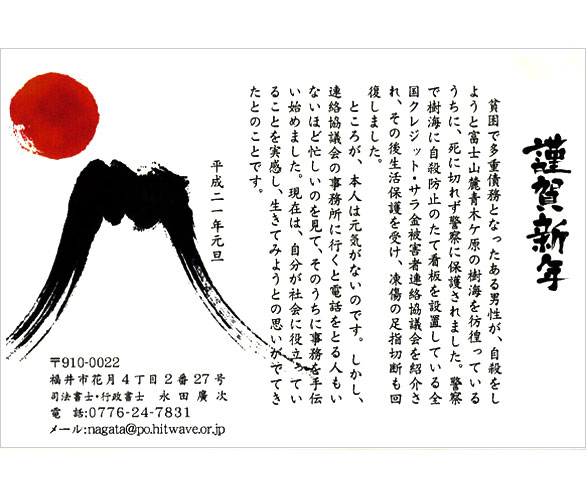 謹賀新年
貧困で多重債務となったある男性が、自殺をし
ようと富士山麓青木ケ原の樹海を彷徨っている
うちに、死に切れず警察に保護されました。警察
で樹海に自殺防止のたて看板を設置している全
国クレジット・サラ金被害者連絡協議会を紹介さ
れ、その後生活保護を受け、凍傷の足指切断も回
復しました。
ところが、本人は元気がないのです。しかし、
連絡協議会の事務所に行くと電話をとる人もい
ないほど忙しいのを見て、そのうちに事務を手伝
い始めました。現在は、自分が社会に役立ってい
ることを実感し、生きてみようとの思いがでてき
たとのことです。
平成二一年元旦
〒910-0022
福井市花月4丁目2番27号
司法書士・行政書士 永田廣次
電 話:0776-24-7831
メール:nagata@po.hitwave.or.jp